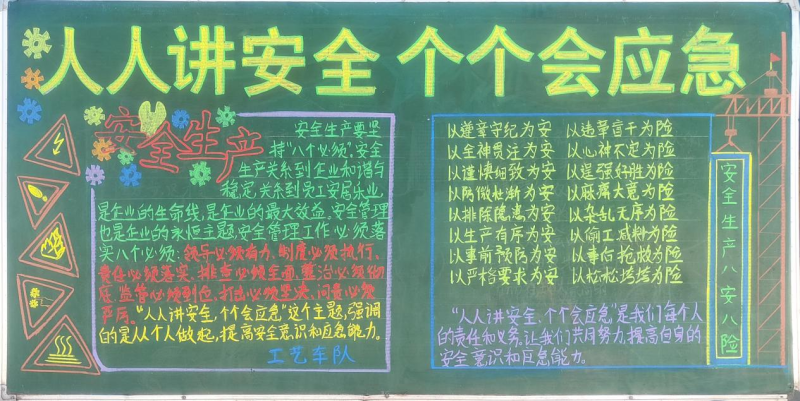 人人讲安全 个个会应急
安全生产
安全生产要坚
持“八个必须”,安全
生产关系到企业和谐与
稳定,关系到员工安居乐业,
是企业的生命线,是企业的最大效益,安全管理
也是企业的永恒主题,安全管理工作必须落
实八个必须:领导必须有力,制度必须执行、
责任必须落实、排查必须全面、整治必须彻
底、监管必须到位、打击必须坚决、问责必须
严厉。“人人讲安全,个个会应急”这个主题,强调
的是从个人做起,提高安全意识和应急能力。
工艺车队
以遵章守纪为安 以违章盲干为险
以全神贯注为安 以心神不定为险
以谨慎细致为安 以逞强好胜为险
以防微杜渐为安 以麻痹大意为险
以排除隐患为安 以杂乱无序为险
以生产有序为安 以偷工减料为险
以事前预防为安 以事后抢救为险
以严格要求为安 以松松垮垮为险
“人人讲安全,个个会应急”是我们每个人
的责任和义务。让我们共同努力,提高自身的
安全意识和应急能力。
安全生产八安八险